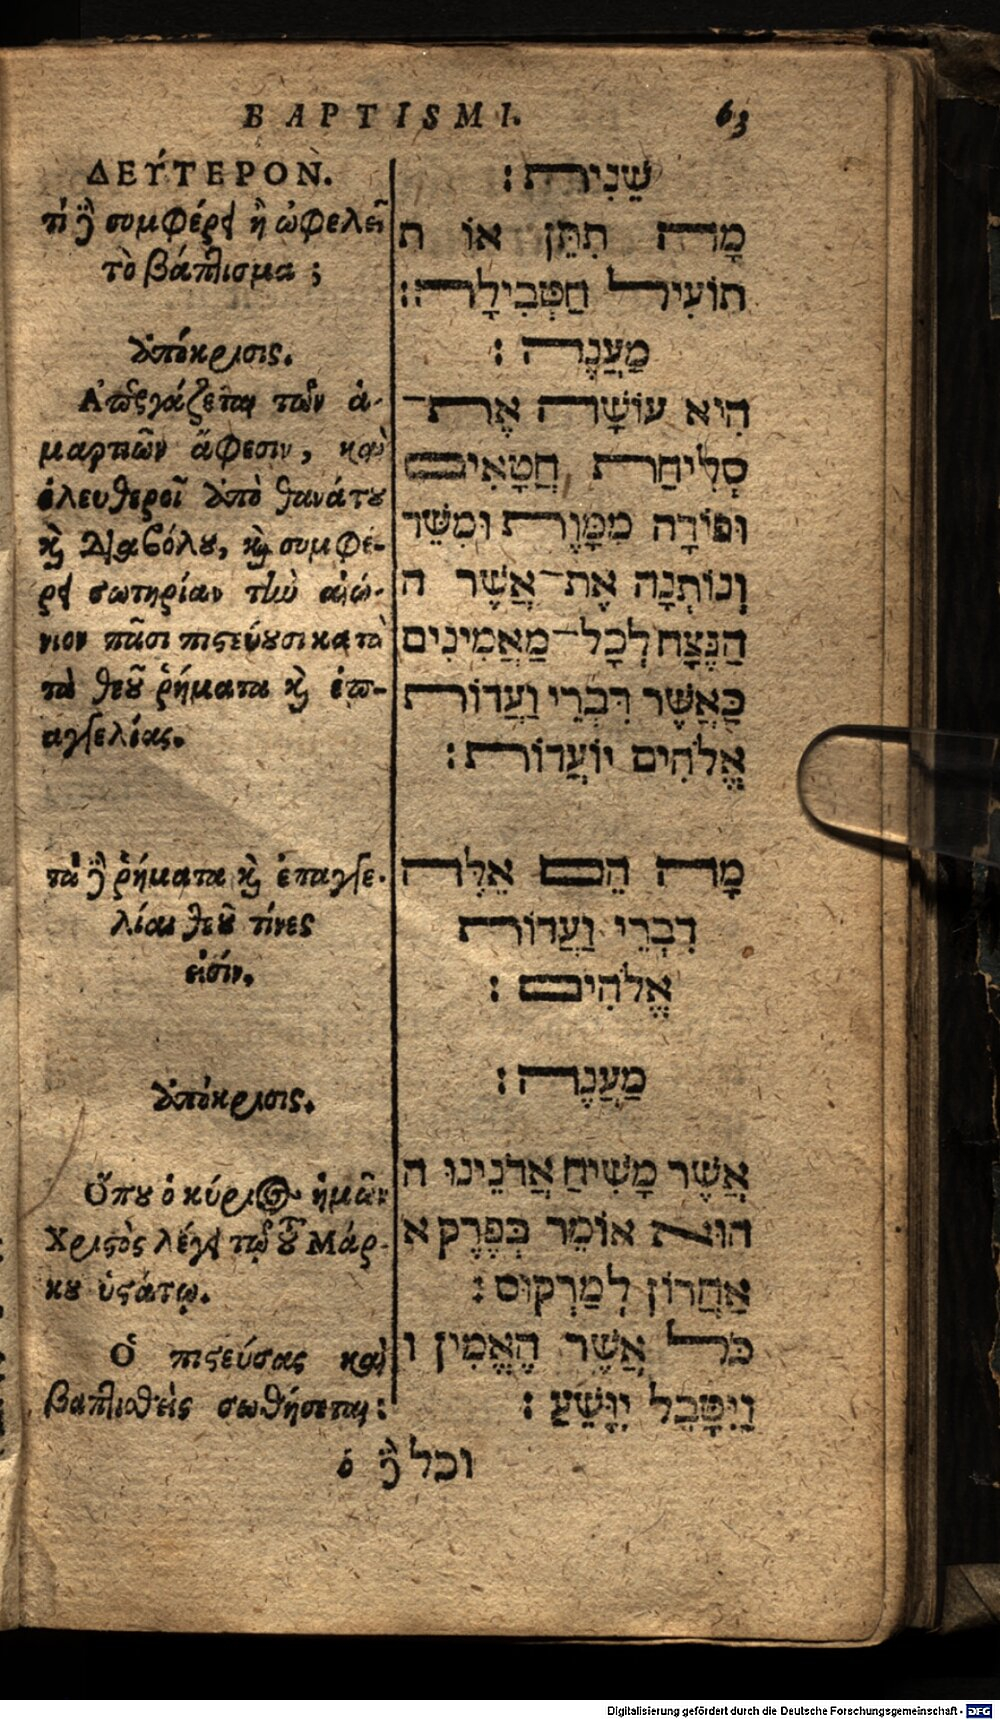 BAPTISMI. 63
ΔΕΎΤΕΡΟΝ.
τί δὲ συμφέρει ἢ ὠφελεῖ
τὸ βάπτισμα;
ἀπόκρισις.
Ἀπεργάζεται τῶν ἁ-
μαρτιῶν ἄφεσιν, καὶ
ἐλευθεροῖ ἀπὸ θανάτου
καὶ Διαβόλου, καὶ συμφέ-
ρει σωτηρίαν τὴν αἰώ-
νιον πᾶσι πιστεύουσι κατὰ
τὰ θεοῦ ῥήματα καὶ ἐπ-
αγγελίας.
τὰ δὲ ῥήματα καὶ ἐπαγγε-
λίαι θεοῦ τίνες
εἰσίν.
ἀπόκρισις.
Ὅπου ὁ κύριος ἡμῶν
Χριστὸς λέγει τῷ τοῦ Μάρ-
κου ὑστάτῳ.
Ὁ πιστεύσας καὶ
βαπτισθεὶς σωθήσεται:
שֵׁנִית׃
מָה תִּתֵּן אוֹ ת
תוֹעִיל הַטְּבִילָה׃
מַעֲנֶה׃
הִיא עוֹשָׂה אֶת־
סְלִיחַת חֲטָאִים
וּפוֹדָה מִמָּוֶת וּמִשֵּׁד
וְנוֹתְנָה אֶת־אֲשֶׁר ה
הַנֶּצַח לְכָל־מַאֲמִינִים
כַּאֲשֶׁר דִּבְרֵי וַעֲדוֹת
אֱלֹהִים יוֹעֲדוֹת׃
מָה הֵם אֵלֶּה
דִבְרֵי וַעֲדוֹת
אֱלֹהִים׃
מַעֲנֶה׃
אֲשֶׁר מָשִׁיחַ אֲדֹנֵינוּ ה
הוּא אוֹמֵר בְּפֶרֶק א
אַחֲרוֹן לְמַרְקוּס׃
כֹּל אֲשֶׁר הֶאֱמִין ו
וַיִּטָּבֵל יִוָּשֵׁעַ׃
ὁ δὲ וכל
Digitalisierung gefördert durch die Deutsche Forschungsgemeinschaft - DFG